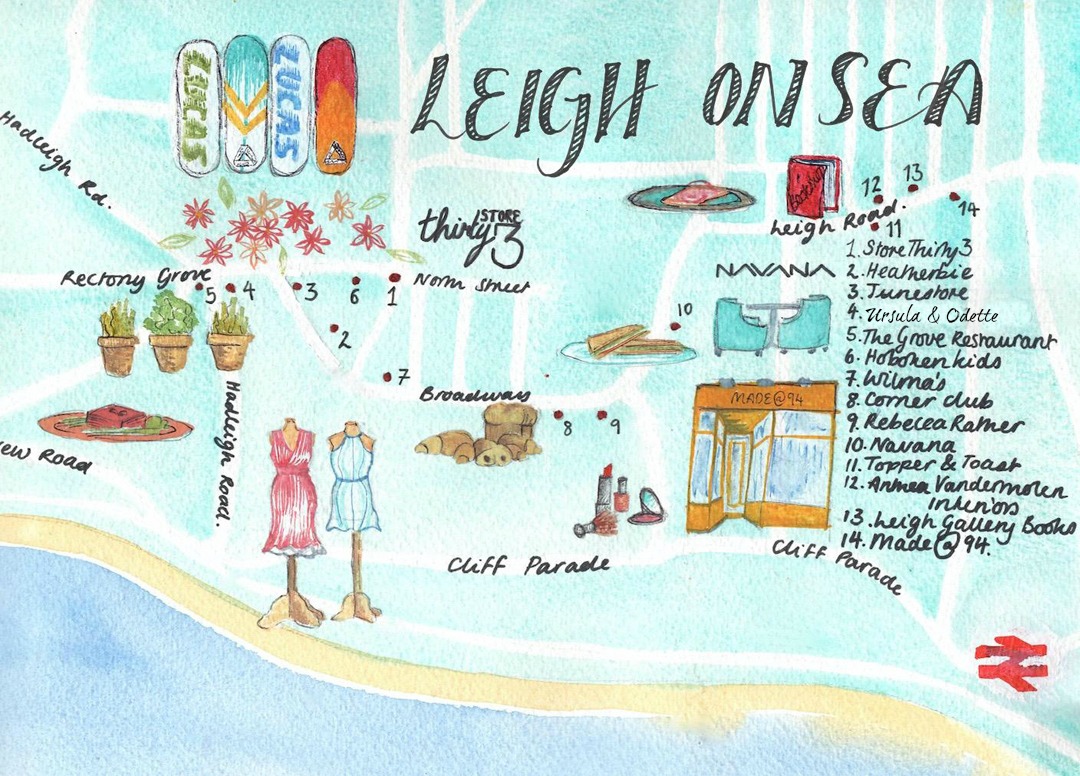 LEIGH ON SEA
LUCAS
LUCAS
Hadleigh Rd.
Bookshop
12
13
14
Leigh Road.
11
thirty
STORE
3
Rectory Grove
5
4
3
6
1
Norm Street
2
7
NAVANA
10
1. Store Thirty 3
2. Heatherbie
3. Junestore
4. Ursula & Odette
5. The Grove Restaurant
6. Hoboken kids
7. Wilma's
8. Corner club
9. Rebecca Rather
10. Navana
11. Topper & Toast
12. Anthea Vandermolen
Interiors
13. Leigh Gallery Books
14. Made@94.
Broadway
8
9
MADE@94
Hadleigh Road.
ew Road
Cliff Parade
Cliff Parade